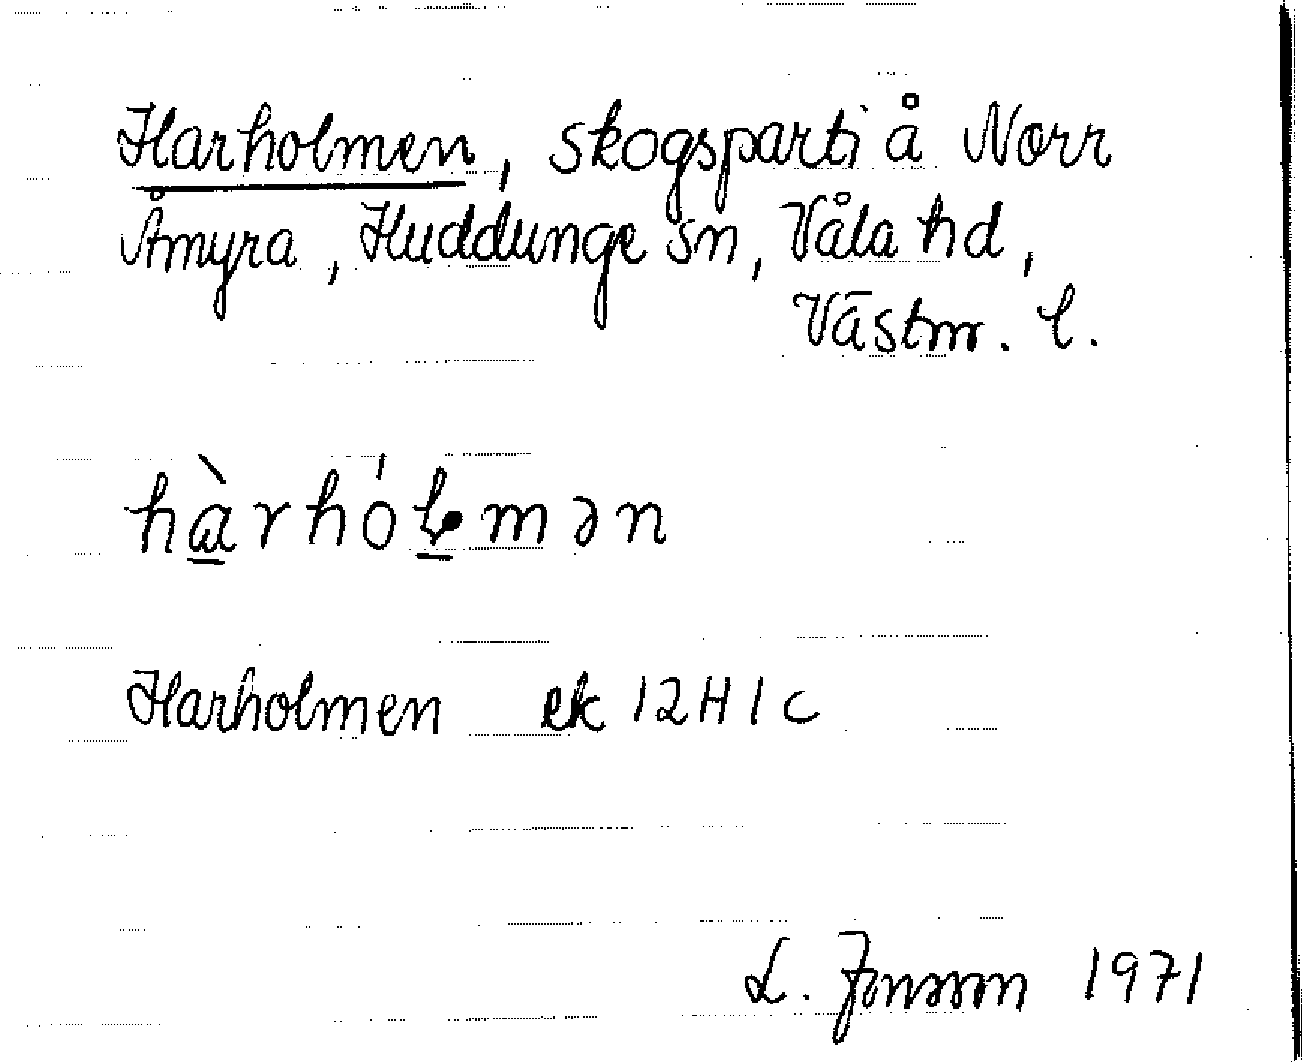 Harholmen, skogsparti å Norr
Åmyra, Huddunge sn, Våla hd,
Västm. l.
hàrhólmən
Harholmen ek 12H1c
L. Jonsson 1971